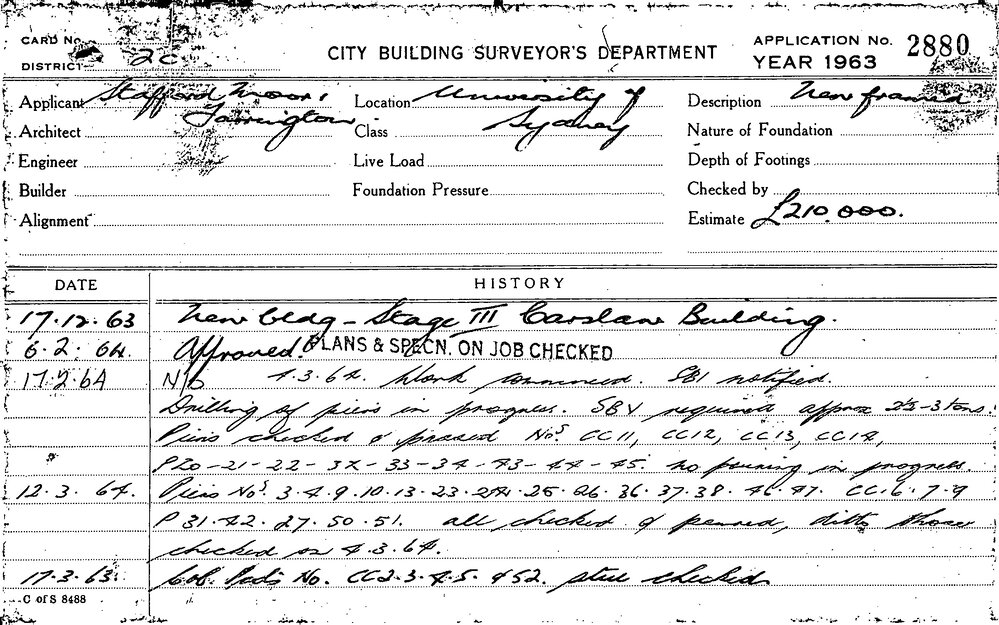 CARD No.
DISTRICT 2C
CITY BUILDING SURVEYOR'S DEPARTMENT
APPLICATION No. 2880
YEAR 1963
Applicant Stafford Moor &
Farrington
Location University of
Sydney
Description New framed
Architect
Class
Nature of Foundation
Engineer
Live Load
Depth of Footings
Builder
Foundation Pressure
Checked by
Alignment
Estimate £210,000.
DATE HISTORY
17.12.63 New bldg - Stage III Carslaw Building.
6.2.64. Approved. PLANS & SPECN. ON JOB CHECKED
17.2.64 N/S 4.3.64. Work commenced. SBI notified.
Drilling of piers in progress. required approx 2½-3 tons.
Piers checked & passed Nos CC11, CC12, CC13, CC14,
P20-21-22-32-33-34-43-44-45. no in progress.
12.3.64. Piers Nos 3.4.9.10.13.23.24.25.26.36.37.38.46.47. CC.6.7.9
P31.42.27.50.51. all checked & ditto those
checked on 4.3.64.
17.3.63. No. CC2.3.4.5. & 52. steel checked
C of S 8488